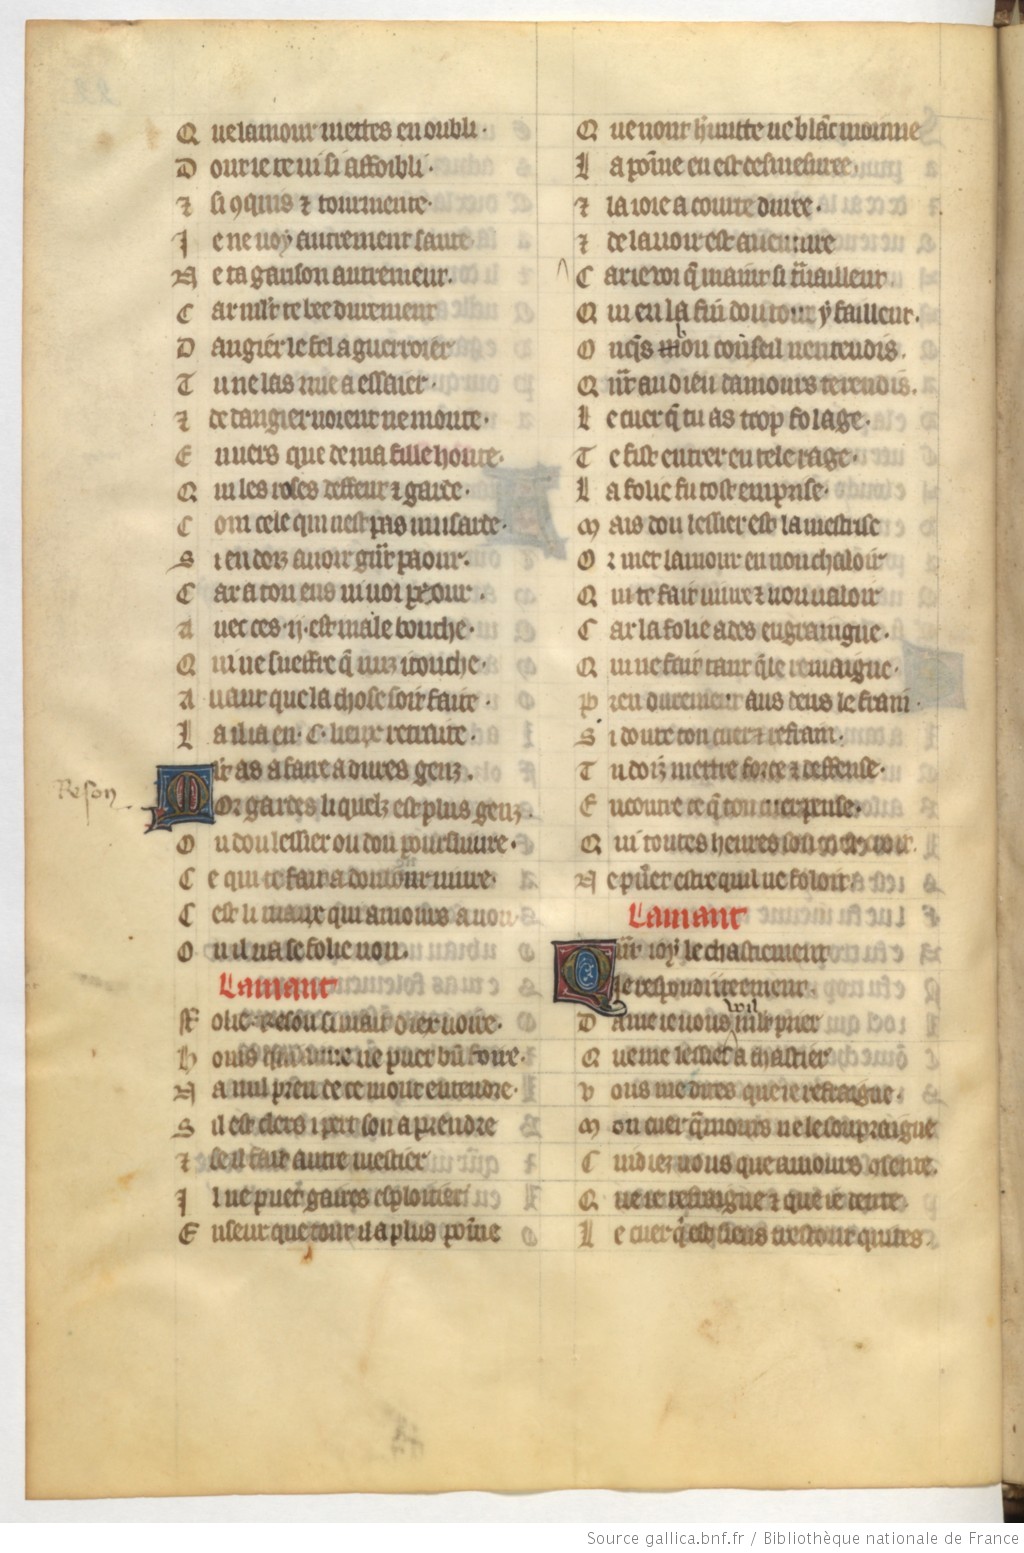 Q ue lamour mettes en oubli.
D ont ie te ui si affoibli.
⁊ si ꝯquis ⁊ tourmente.
J e ne uoy autrement sante
N e ta garison autrement.
C ar mlt̄ te bee durement
D angier le fel a guerroier
T u ne las mie a essaier.
⁊ de dangier noient ne monte.
E nuers que de ma fille honte.
Q ui les roses deffent ⁊ garde.
C om cele qui nest pas musarde.
S i en doiz auoir grāt paour.
C ar a ton eus ni uoi peour.
A uec ces .ij. est male bouche.
Q ui ne sueffre q̄ nuz i touche.
A uant que la chose soit faite
L a il ia en .C. lieux retraite.
M lt̄ as a faire a dures genz.
Reson
Or gardes li quelz est plus genz.
O u dou lessier ou dou poursiuure.
C e qui te fait a dolour uiure.
C est li maux qui amours a non
O u il na se folie non.
Lamant
F olie. Reson si mait diex uoire.
H ons qui aime ne puet bn̄ foire.
N a nul preu de ce mont entendre.
S il est clers i pert son aprendre
⁊ se il fait autre mestier
J l ne puet gaires esploitier
E nseur que tout il a plus poīne
Q ue nont hermitte ne blāc moinne
L a poīne en est desmesuree.
⁊ la ioie a courte duree.
⁊ de lauoir est auenture
C ar ie uoi q̄ maint si trauaillent.
Q ui en la fin dou tout y faillent.
O ncq̄s mon conseil nentendis.
Q nt̄ au dieu damours te rendis.
L e cuer q̄ tu as trop folage.
T e fist entrer en tele rage.
L a folie fu tost emprise.
M ais dou lessier est la mestrise
O r met lamour en nonchaloir
Q ui te fait uiure ⁊ non ualoir
C ar la folie ades engraingne.
Q ui ne fait tant q̄le remaigne.
P ren durement aus dens le frain.
S i donte ton cuer ⁊ refrain.
T u doiz mettre force ⁊ deffense.
E ncontre ce q̄ ton cuer pense.
Q ui toutes heures son cuer croit.
N e puet estre quil ne foloit.
Lamant
Q nt̄ ioy le chastiement
ie respondi iriement.
D ame ie uous uil prier
Q ue me lessiez a chastier
V ous me dites que ie refraigne.
M on cuer q̄ mours ne le sourpraigne
C uidiez uous que amours consente.
Q ue ie refraigne ⁊ que ie dente
L e cuer q̄ est siens trestout quites.
Source gallica.bnf.fr / Bibliothèque nationale de France